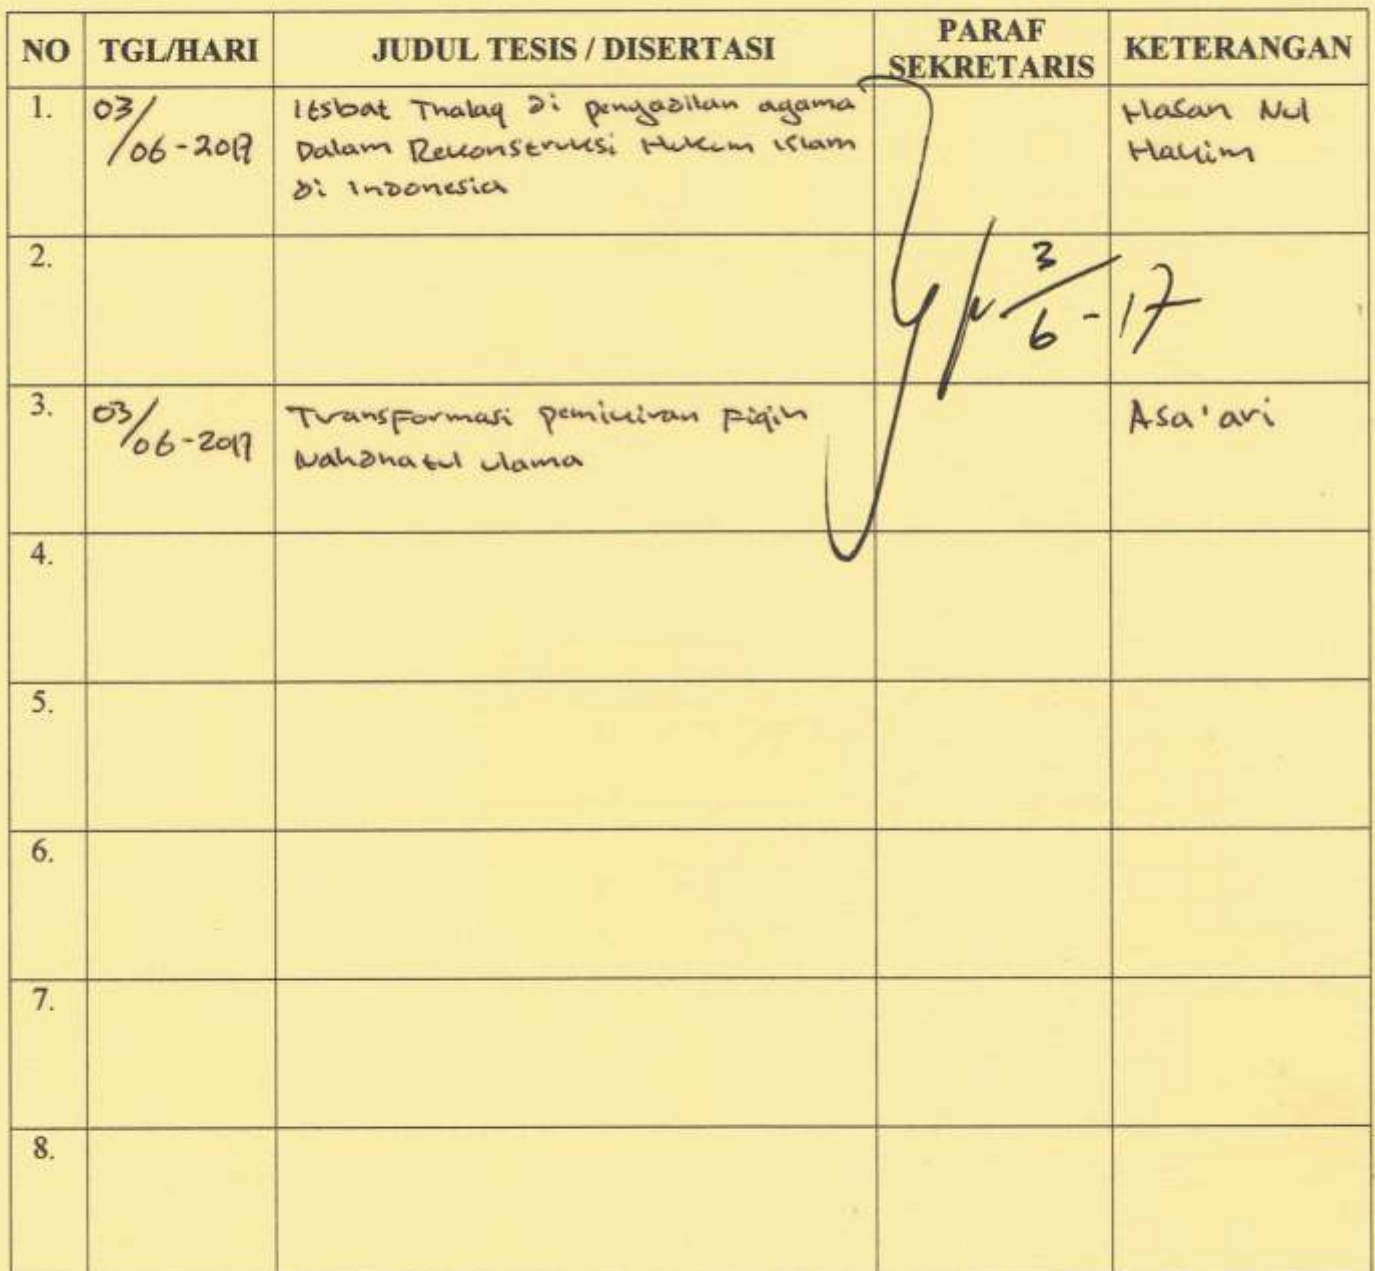 NO TGL/HARI JUDUL TESIS / DISERTASI PARAF SEKRETARIS KETERANGAN
1. 03/06-2017 Itsbat Thalaq di pengadilan agama Hasan Nul
Dalam Rekonstruksi Hukum Islam Hakim
di Indonesia
2. 3/6-17
3. 03/06-2017 Transformasi pemikiran Fiqih Asa'ari
Nahdhatul ulama
4.
5.
6.
7.
8.